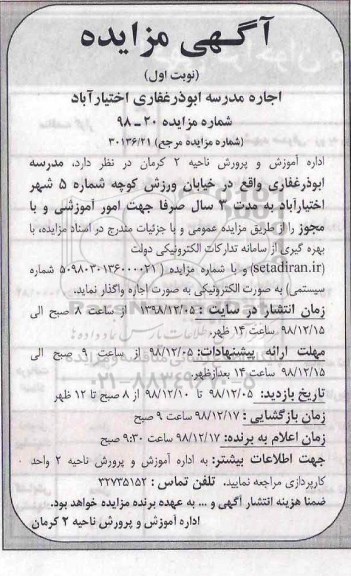 آگهی مزایده
(نوبت اول)
اجاره مدرسه ابوذرغفاری اختیارآباد
شماره مزایده ۲۰ ـ ۹۸
(شماره مزایده مرجع) ۳۰۱۳۶/۲۱
اداره آموزش و پرورش ناحیه ۲ کرمان در نظر دارد، مدرسه
ابوذرغفاری واقع در خیابان ورزش کوچه شماره ۵ شهر
اختیارآباد به مدت ۳ سال صرفا جهت امور آموزشی و با
مجوز را از طریق مزایده عمومی و با جزئیات مندرج در اسناد مزایده، با
بهره گیری از سامانه تدارکات الکترونیکی دولت
(setadiran.ir) و با شماره مزایده (۵۰۹۸۰۳۰۱۳۶۰۰۰۰۲۱ شماره
سیستمی) به صورت الکترونیکی به صورت اجاره واگذار نماید.
زمان انتشار در سایت : ۱۳۹۸/۱۲/۰۵ از ساعت ۸ صبح الی
۹۸/۱۲/۱۵ ساعت ۱۴ ظهر.
مهلت ارائه پیشنهادات: ۹۸/۱۲/۰۵ از ساعت ۹ صبح الی
۹۸/۱۲/۱۵ ساعت ۱۴ بعدازظهر.
تاریخ بازدید: ۹۸/۱۲/۰۵ تا ۹۸/۱۲/۱۰ از ۸ صبح تا ۱۲ ظهر
زمان بازگشایی : ۹۸/۱۲/۱۷ ساعت ۹ صبح
زمان اعلام به برنده: ۹۸/۱۲/۱۷ ساعت ۹:۳۰ صبح
جهت اطلاعات بیشتر: به اداره آموزش و پرورش ناحیه ۲ واحد
کارپردازی مراجعه نمایید. تلفن تماس : ۳۲۷۳۵۱۵۲
ضمنا هزینه انتشار آگهی و ... به عهده برنده مزایده خواهد بود.
اداره آموزش و پرورش ناحیه ۲ کرمان